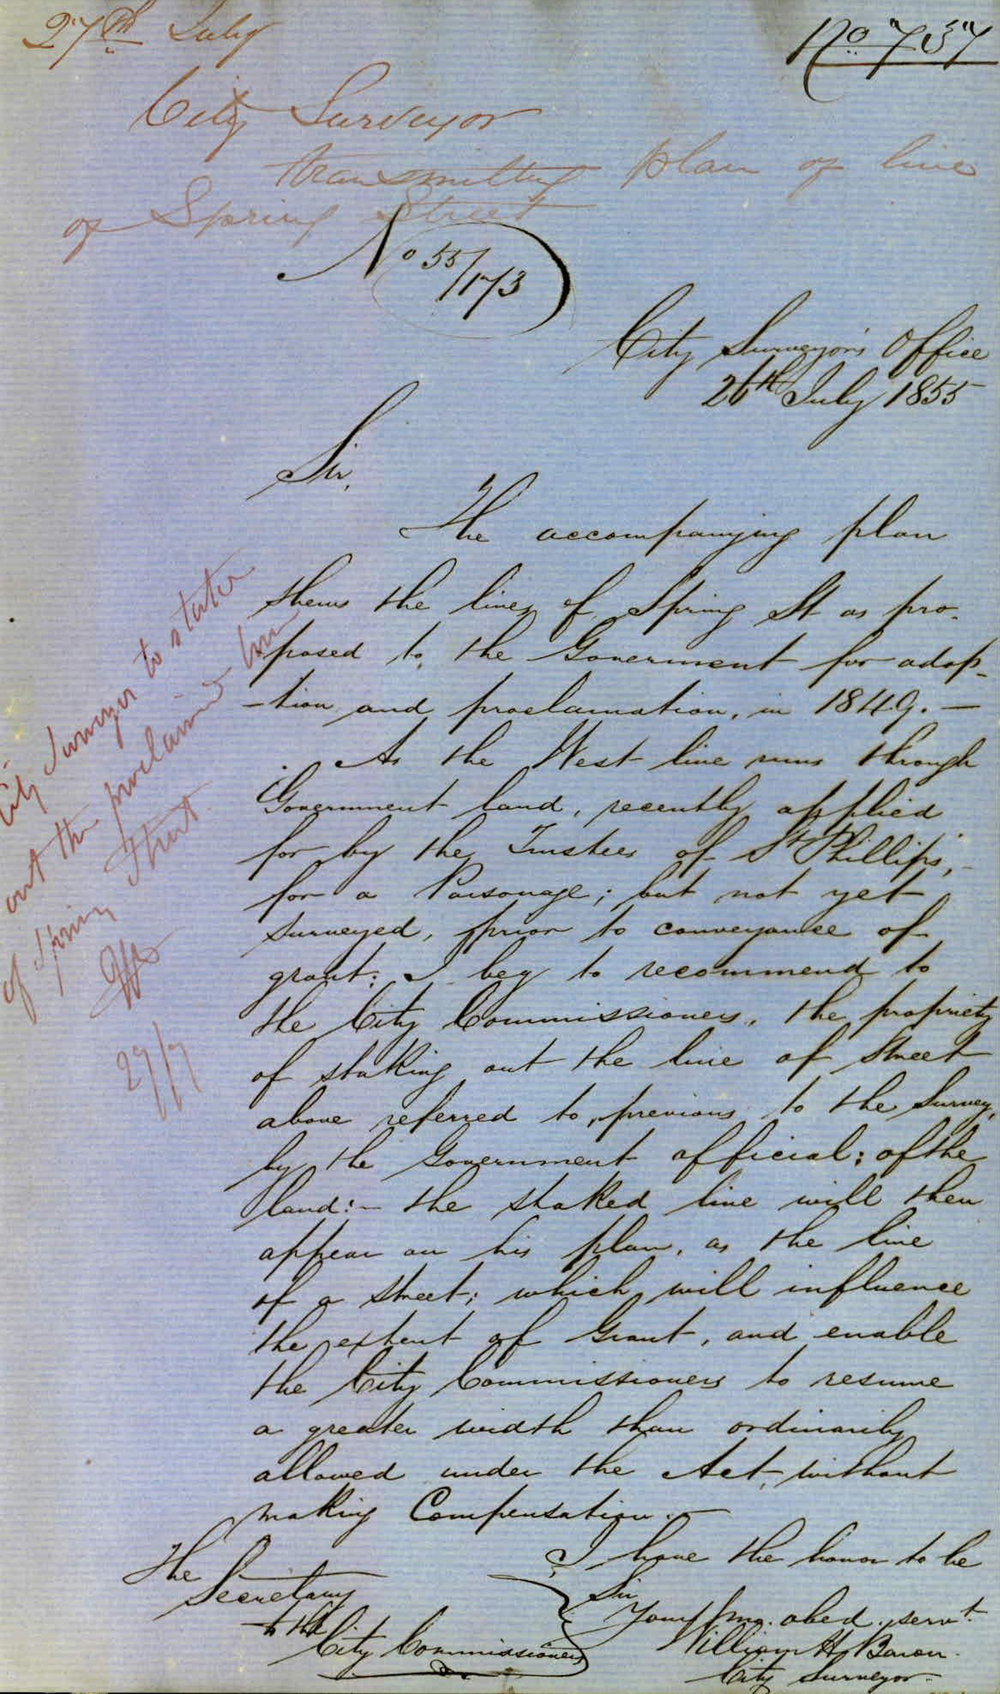 27th July
No 757
City Surveyor
transmitting plan of line
of Spring Street
No 55/173
City Surveyor's Office
26th July 1855
Sir,
The accompanying plan
shews the lines of Spring St as pro-
-posed to the Government for adop-
-tion and proclamation, in 1849. —
As the West line runs through
Government land, recently applied
for by the Trustees of St Phillips, -
for a Parsonage; but not yet
surveyed, prior to conveyance of
grant: I beg to recommend to
the City Commissioners, the propriety
of staking out the line of Street
above referred to, previous to the Survey,
by the Government official; of the
land:- the staked line will then
appear on his plan, as the line
of a street; which will influence
the extent of Grant, and enable
the City Commissioners to resume
a greater width than ordinarily
allowed under the Act, without
making Compensation. -
I have the honor to be
Sir
Your mo. obed. servt.
William H Baron.
City Surveyor.
The
Secretary
to the
City Commissioners
City Surveyor to stake
out the proclaimed line
of Spring Street